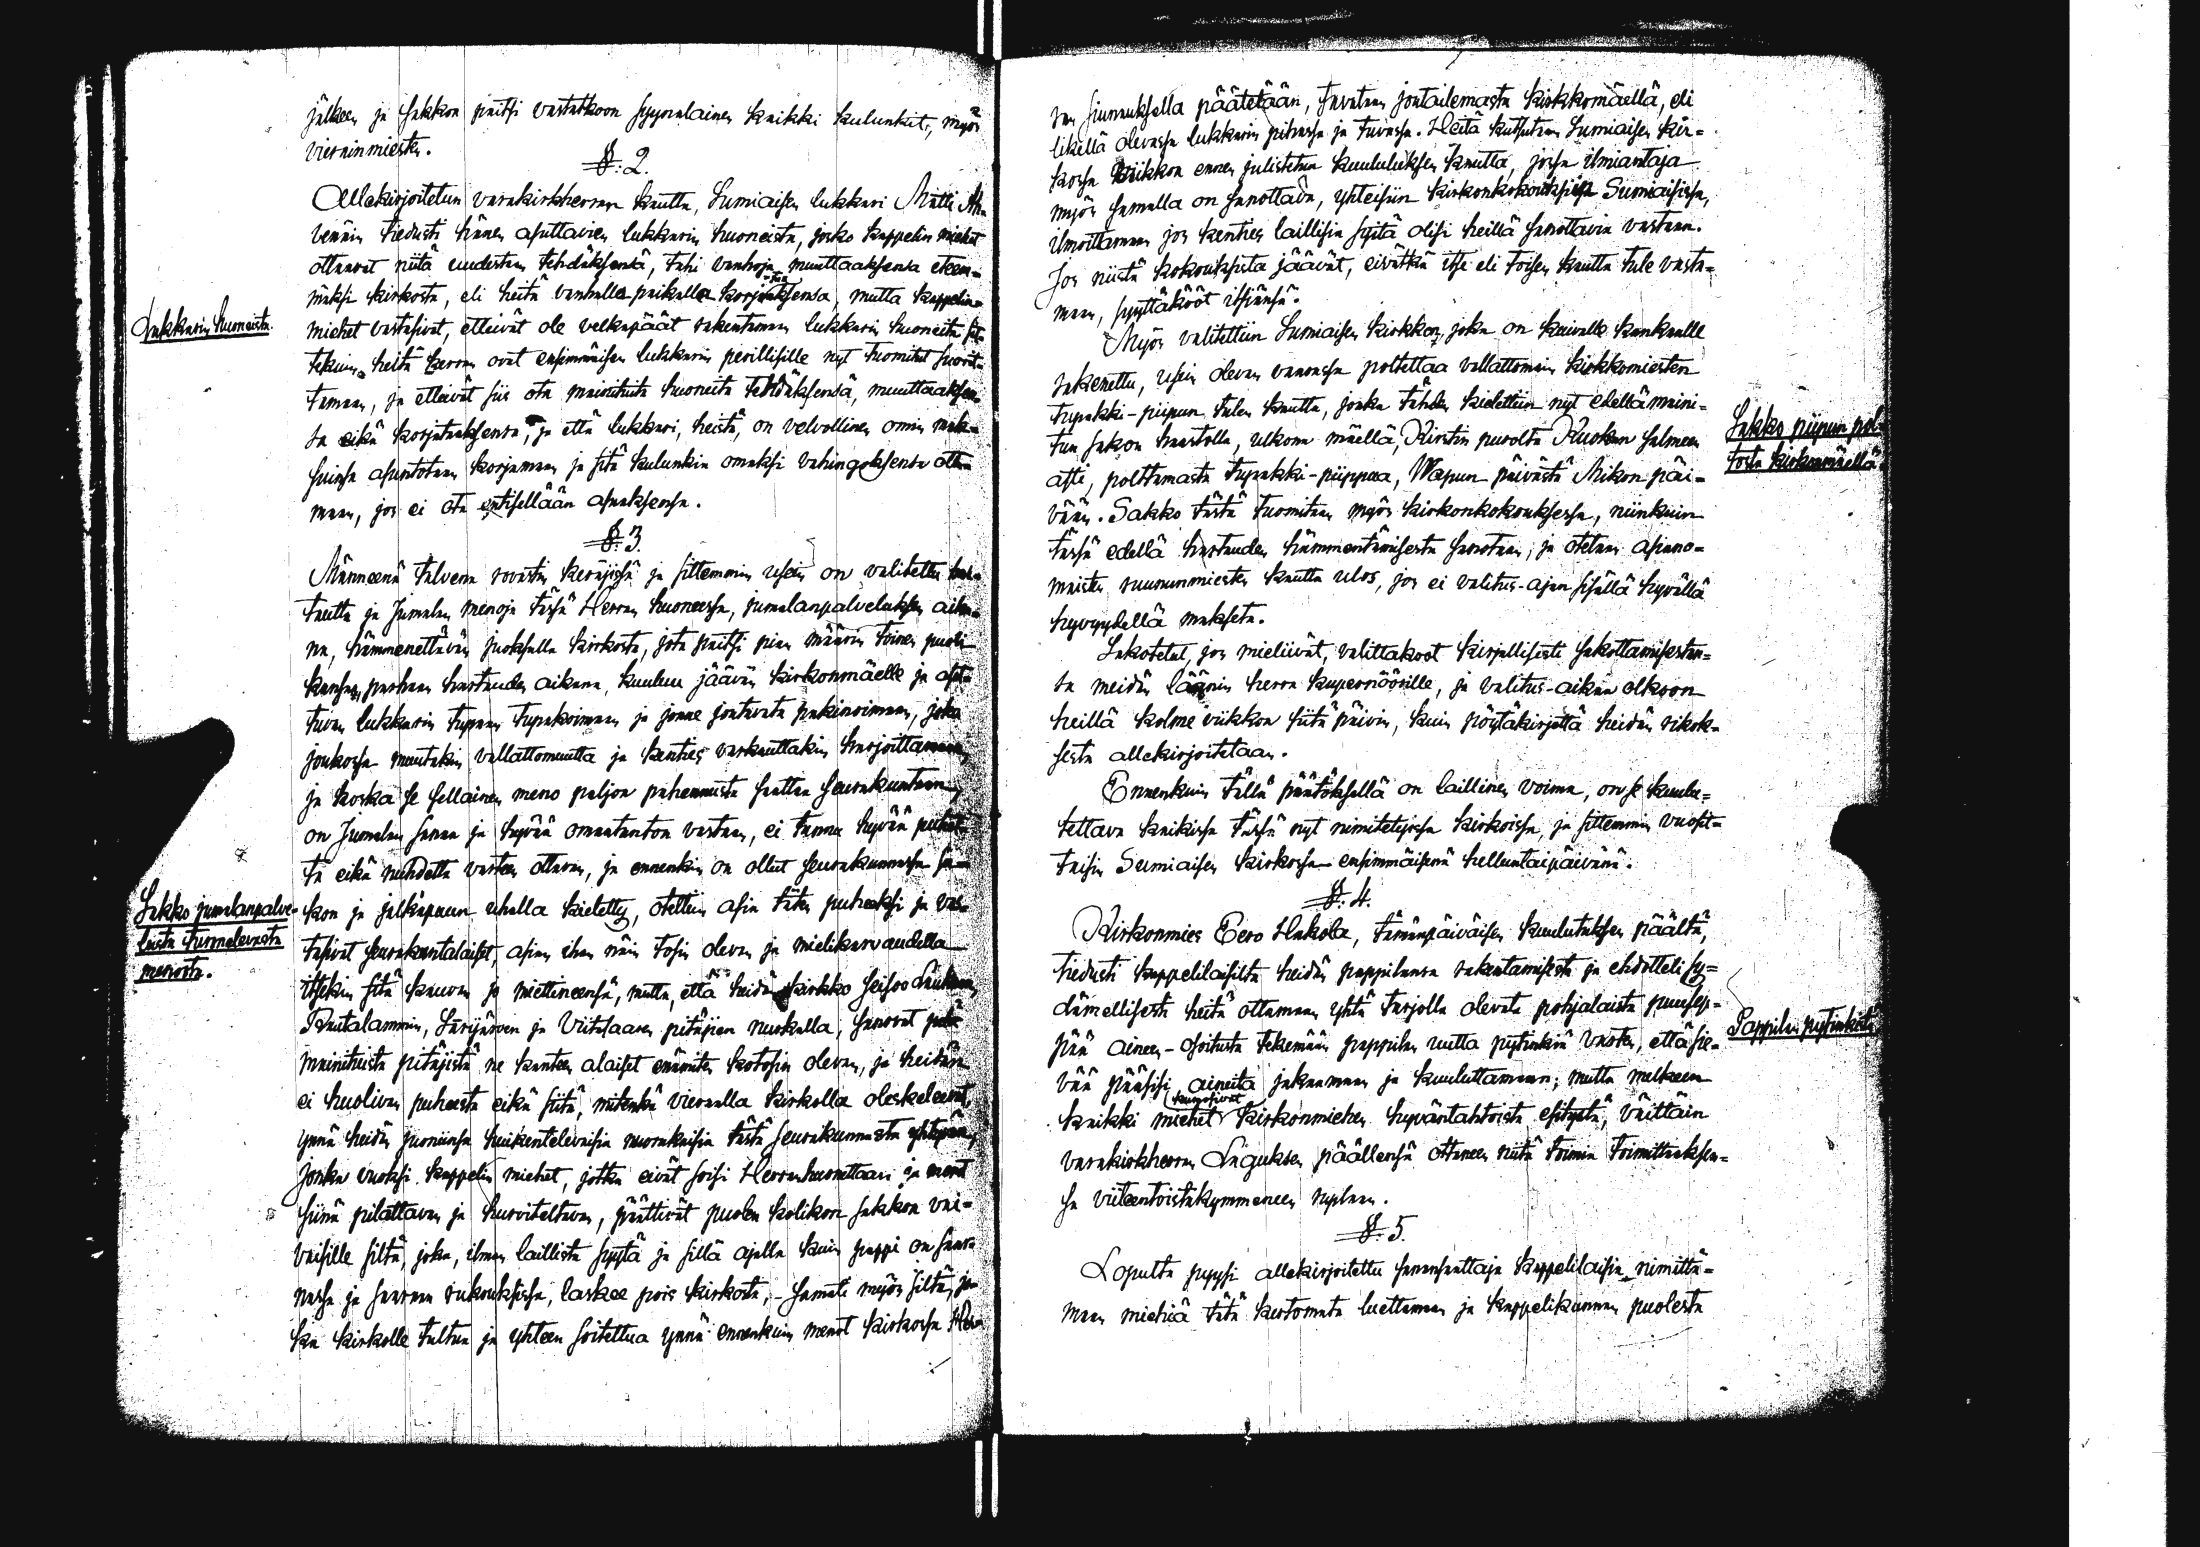 jälkeen ja sakkon paitsi vastatkoon syynalainen kaikki kulunkit, myös
vierainmiesten.
§: 2.
Allekirjoitetun varakirkkherran kautta, Sumiaisen lukkari Matti
tiedusti hänen asuttavien lukkarin huoneista, josko kappelin miehet
ottaavat niitä uudestan tehdäksensä, tahi vanhoja muuttaaksensa eteem-
mäksi kirkosta, eli heitä vanhalla paikalla korjataksensa, mutta kappelin
Lukkarin huoneista.
miehet vastasivat, etteivät ole velkapäät rakentamaan lukkarin huoneita
heitä kerran ovat ensimmäisen lukkarin perillisille nyt tuomitut suorit-
tamaan, ja etteivät siis ota mainituita huoneita tehdäksensä, muuttaaksen-
sa eikä korjataksensa, ja että lukkari, heistä, on velvollinen omin mak-
suinsa asuntotaan korjamaan ja sitä kulunkia omaksi vahingoksensa otta-
maan, jos ei ota entisellään asuaksensa.
§: 3.
Männeenä talvena rovastin käräjissä ja sittemmin usein on valitettu
ja Jumalan menoja tässä Herran huoneessa, jumalanpalveluksen aika-
na, hämmenettävän juoksulla kirkosta, jota paitsi pian määrin toinen puoli
kansaa, parhaan hartauden aikana, kuuluu jäävän kirkonmäelle ja
lukkarin tupaan tupakoimaan ja jonne joutavata pakinoimaan, joka
joukossa muutakin vallattomuutta ja kenties varkauttakin harjoittamaan,
ja koska se sellainen meno paljon pahennusta saattaa seurakuntaan,
on Jumalan sanaa ja hyvää omaatuntoa vastaan, ei tunne hyvää puhet-
ta eikä nuhdetta vasten ottavan, ja ennenkin on ollut seurakunnassa sa-
Sakko jumalanpalve-
lusta turmelevasta
menosta.
kon ja jalkapuun uhalla kielletty, otettiin asia tätä puheeksi ja vas-
tasivat seurakuntalaiset, asian ihan näin tosin olevan ja mielikarvaudella
itsekin sitä kauvan jo miettineensä, mutta, että heidän kirkko seisoo Laukaan,
Rautalammin, Saarijärven ja Viitasaaren pitäjien nurkalla, sanovat
mainituista pitäjistä ne kanteen alaiset enimiten kotosin olevan, ja heidän
ei huolivan puheesta eikä siitä, mitenkä vieraalla kirkolla oleskeleevat,
ynnä heidän juoniinsa huikentelevaisia nuorukaisia tästä seurakunnasta
jonka vuoksi kappelin miehet, jotka eivät soisi Herranhuonettaan ja menot
siinä pilattavan ja turviteltavan, päättivät puolen kolikon sakkon vai-
vaisille siltä, joka, ilman laillista syytä ja sillä ajalla kuin pappi on saar-
nassa ja saarnan rukouksissa, laskee pois kirkosta, - samate myös siltä, jo-
ka kirkolle tultua ja yhteen soitettua ynnä ennenkuin menot kirkossa
siunauksella päätetään, tavataan joutailemasta kirkkomäellä, eli
likellä olevassa lukkarin pihassa ja tuvassa. Heitä kutsutaan Sumiaisen kir-
kossa viikkoa ennen julistetun kuulutuksen kautta, jossa ilmiantaja
myös samalla on sanottava, yhteisiin kirkonkokouksiin Sumiaisissa,
ilmoittamaan jos kenties laillisia syitä olisi heillä sanottavia vastaan.
Jos niistä kokouksista jäävät, eivätkä itse eli toisen kautta tule vasta-
maan, syyttäkööt itsiänsä.
Myös valitettiin Sumiaisen kirkkon, joka on kuivalle kankaalle
rakenettu, usein olevan vaarassa polttettaa vallattomain kirkkomiesten
tupakki-piipun tulen kautta, jonka tähden kiellettiin nyt edellä maini-
tun sakon haastolla, ulkona mäellä, Kirstin purolta Kuokan salmeen
asti, polttamasta tupakki-piippua, Wapun päivästä Mikon päi-
Sakko piipun pol-
tosta kirkonmäellä.
vään. Sakko tästä tuomitaan myös kirkonkokouksessa, niinkuin
tässä edellä hartauden hämmentämisestä sanotaan, ja otetaan asiano-
maisten ruununmiesten kautta ulos, jos ei valitus-ajan sisällä hyvällä
hyvyydellä makseta.
Sakotetut, jos mieliivät, valittakoot kirjallisesti sakottamisestan-
sa meidän läänin herra kuvernöörille, ja valitus-aikaa olkoon
heillä kolme viikkoa siitä päivin, kuin pöytäkirjalla heidän rikok-
sesta allekirjoitetaan.
Ennenkuin tällä päätöksellä on laillinen voima, on se kuulu-
tettava kaikissa tässä nyt nimitetyissä kirkoissa, ja sittemmin vuosit-
taisin Sumiaisen kirkossa ensimmäisenä helluntaipäivänä.
§: 4.
Kirkonmies Eero Hakola, tämänpäiväisen kuulutuksen päältä,
tiedusti kappelilaisilta heidän pappilansa rakentamisesta ja ehdotteli sy-
dämellisesti heitä ottamaan yhtä tarjolla olevata pohjalaista puusep-
pää aineen-osoitusta tekemään pappilan uutta pytinkiä vasten, että sie-
Pappilan pytinkistä.
vää pääsisi aineita jakamaan ja kuuluttamaan; mutta melkeen
kaikki miehet kirkonmiehen hyväntahtoista esitystä, väittäin
varakirkkherran Laguksen päällensä ottaneen niitä toimia toimittaaksen-
sa viiteentoistakymmeneen ruplaan.
§: 5.
Lopulta pyysi allekirjoitettu sanansaattaja kappelilaisia nimittä-
maan miehiä tätä kertomata luettamaan ja kappelikunnan puolesta